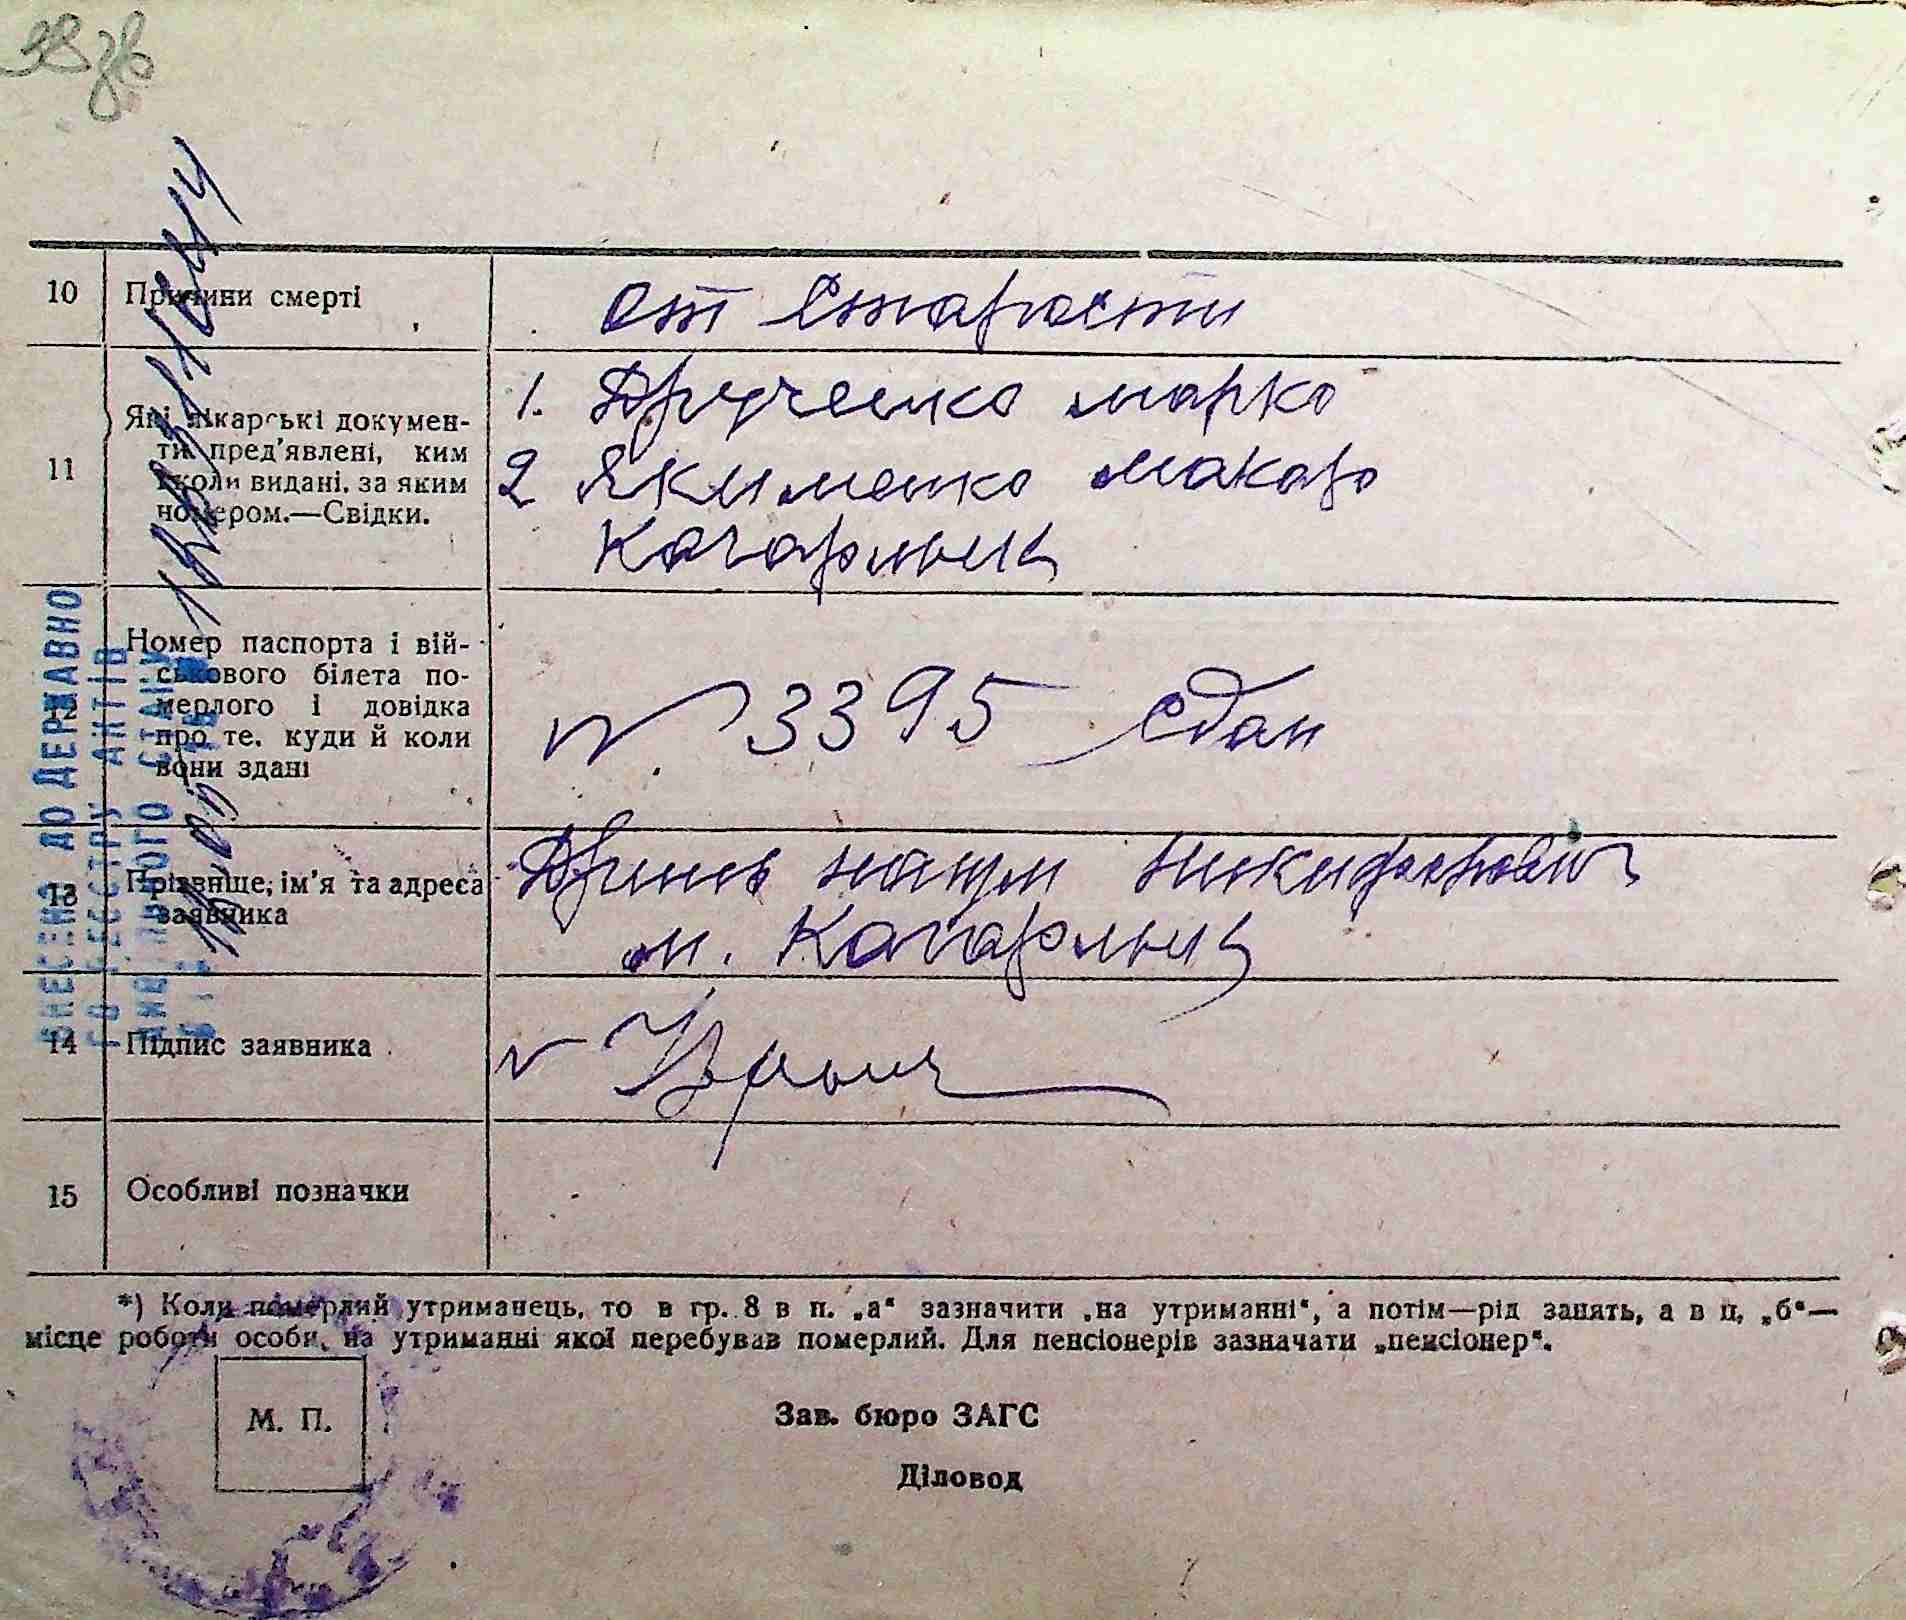 38зв
10 Причини смерті от старости
11 Які лікарські документи пред'явлені, ким
і коли видані, за яким
номером.—Свідки.
1. Друченко марко
2 Якименко макар
Кагарлык
12 Номер паспорта і вій-
ськового білета по-
мерлого і довідка
про те, куди й коли
вони здані
№ 3395 сдан
13 Прізвище, ім'я та адреса
заявника
наум никифорович
м. Кагарлык
14 Підпис заявника
15 Особливі позначки
*) Коли померлий утриманець, то в гр. 8 в п. „а“ зазначити „на утриманні“, а потім—рід занять, а в п. „б“—
місце роботи особи, на утриманні якої перебував померлий. Для пенсіонерів зазначати „пенсіонер“.
М. П.
Зав. бюро ЗАГС
Діловод
ВНЕСЕНО ДО ДЕРЖАВНО
ГО РЕЄСТРУ АКТІВ
ЦИВІЛЬНОГО СТАНУ